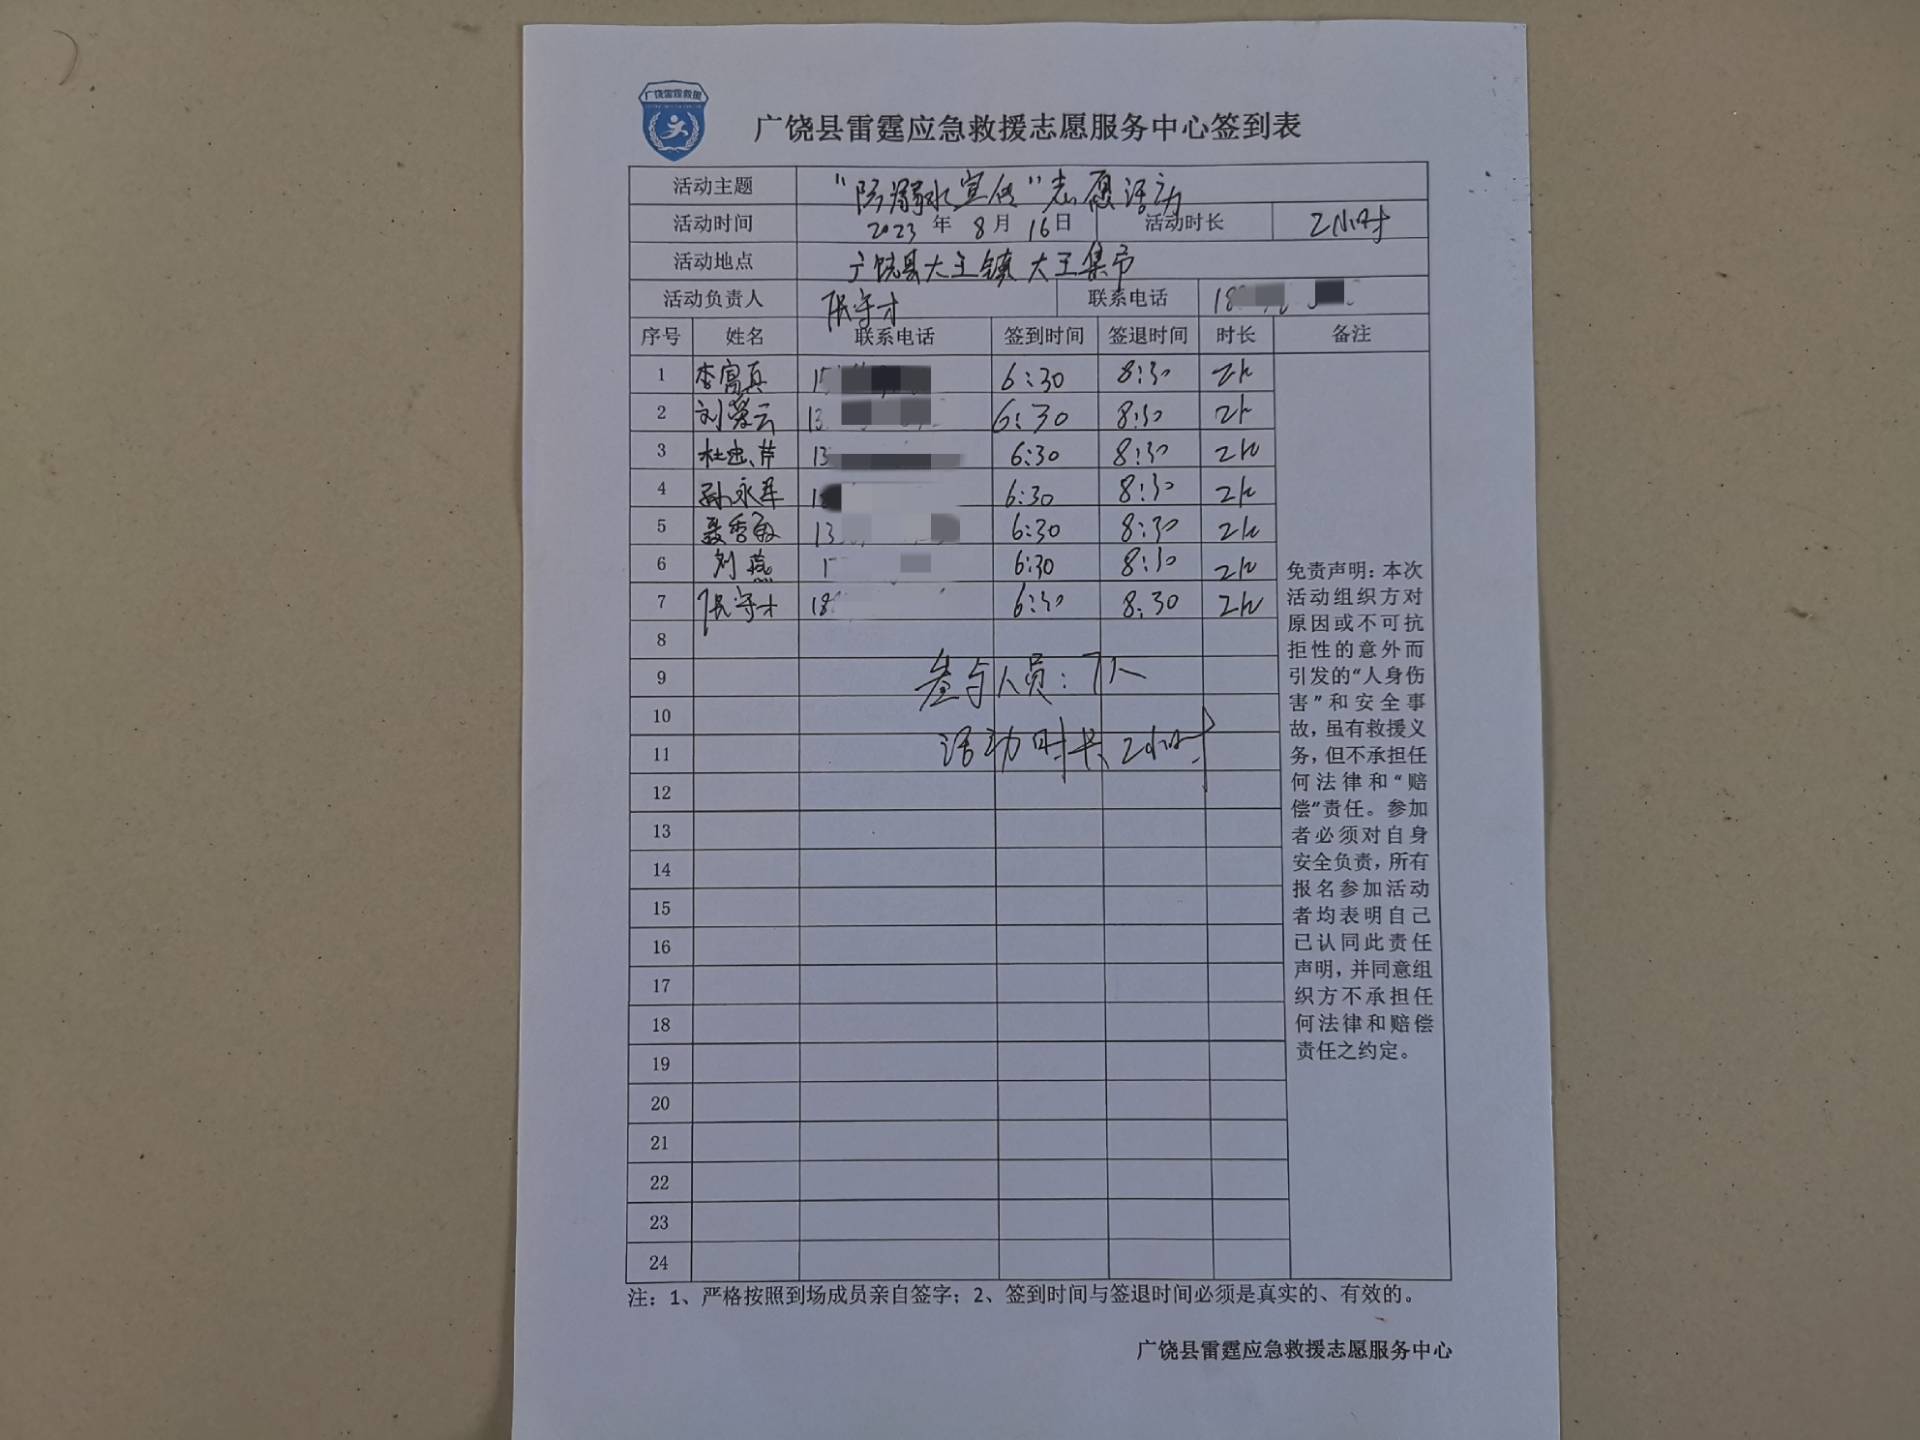 广饶雷霆救援
广饶县雷霆应急救援志愿服务中心签到表
活动主题 “防溺水宣传”志愿活动
活动时间 2023 年 8 月 16 日 活动时长 2小时
活动地点 广饶县大王镇 大王集市
活动负责人 张守才 联系电话 18
序号 姓名 联系电话 签到时间 签退时间 时长 备注
1 李富真 6:30 8:30 2h
2 刘翠云 13 6:30 8:30 2h
3 杜忠芹 13 6:30 8:30 2h
4 孙永军 6:30 8:30 2h
5 聂秀敏 13 6:30 8:30 2h
6 刘燕 6:30 8:30 2h
7 张守才 18 6:30 8:30 2h
8
9 参与人员：7人
10
11 活动时长 2小时
12
13
14
15
16
17
18
19
20
21
22
23
24
免责声明：本次
活动组织方对
原因或不可抗
拒性的意外而
引发的“人身伤
害”和安全事
故，虽有救援义
务，但不承担任
何法律和“赔
偿”责任。参加
者必须对自身
安全负责，所有
报名参加活动
者均表明自己
已认同此责任
声明，并同意组
织方不承担任
何法律和赔偿
责任之约定。
注：1、严格按照到场成员亲自签字；2、签到时间与签退时间必须是真实的、有效的。
广饶县雷霆应急救援志愿服务中心